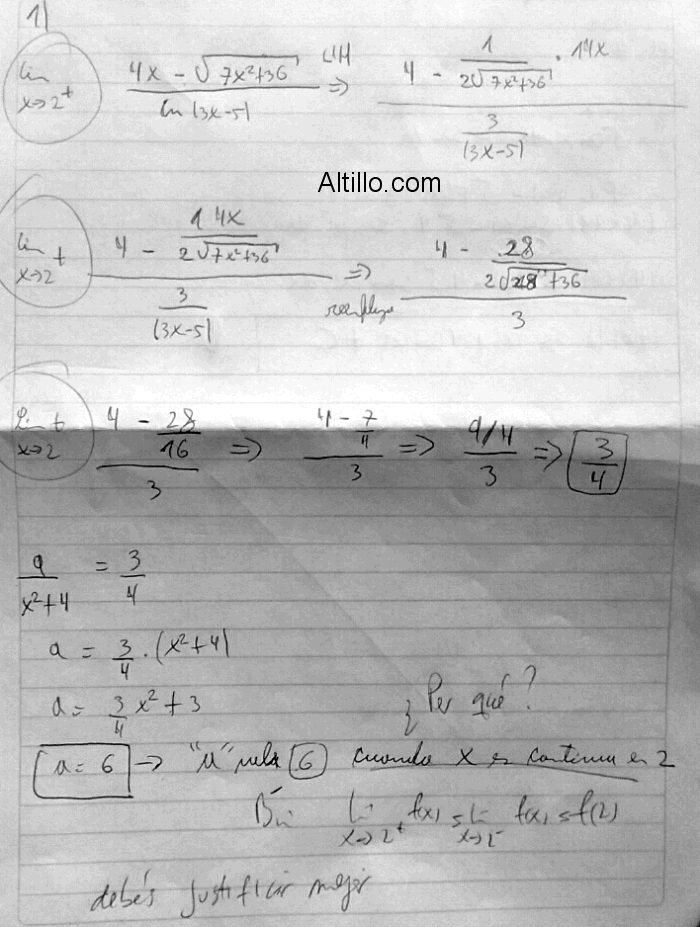 1)
lim x→2⁺ (4x - √(7x²+36)) / (ln (3x-5)) L'H ⇒ (4 - 1/(2√(7x²+36)) · 14x) / (3/(3x-5))
Altillo.com
lim x→2⁺ (4 - 14x/(2√(7x²+36))) / (3/(3x-5)) ⇒ (4 - 28/(2√(28+36))) / 3
Lim x→2⁺ (4 - 28/16) / 3 ⇒ (4 - 7/4) / 3 ⇒ (9/4) / 3 ⇒ 3/4
a/(x²+4) = 3/4
a = 3/4 · (x²+4)
a = 3/4 x² + 3
¿Por qué?
a = 6 → "a" vale 6 cuando x es continua en 2
Lim x→2⁺ f(x) = Li x→2⁻ f(x) = f(2)
debés justificar mejor